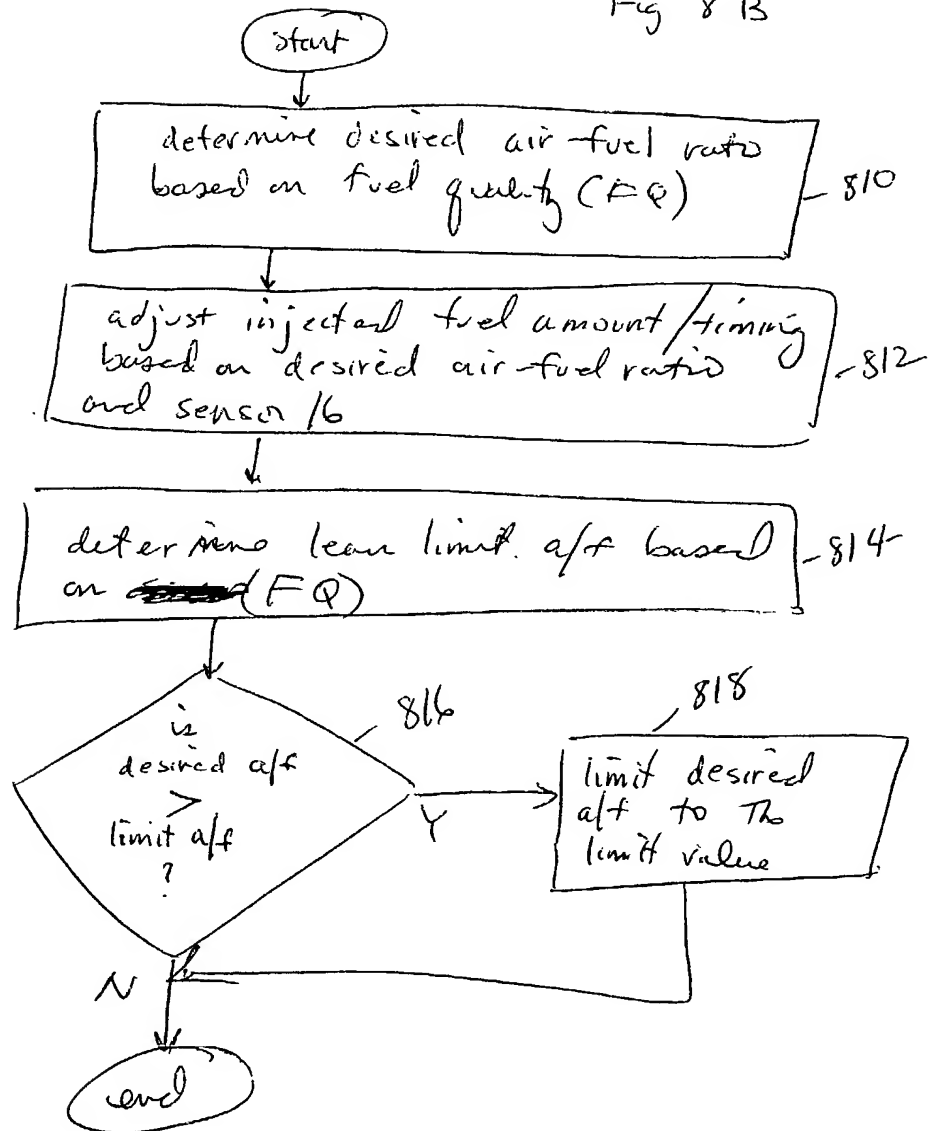 Fig 8 B
start
determine desired air-fuel ratio
based on fuel quality (FQ)
810
adjust injected fuel amount/timing
based on desired air-fuel ratio
and sensor 16
812
determine lean limit. a/f based
on (FQ)
814
is
desired a/f
>
limit a/f
?
816
Y
818
limit desired
a/f to the
limit value
N
end